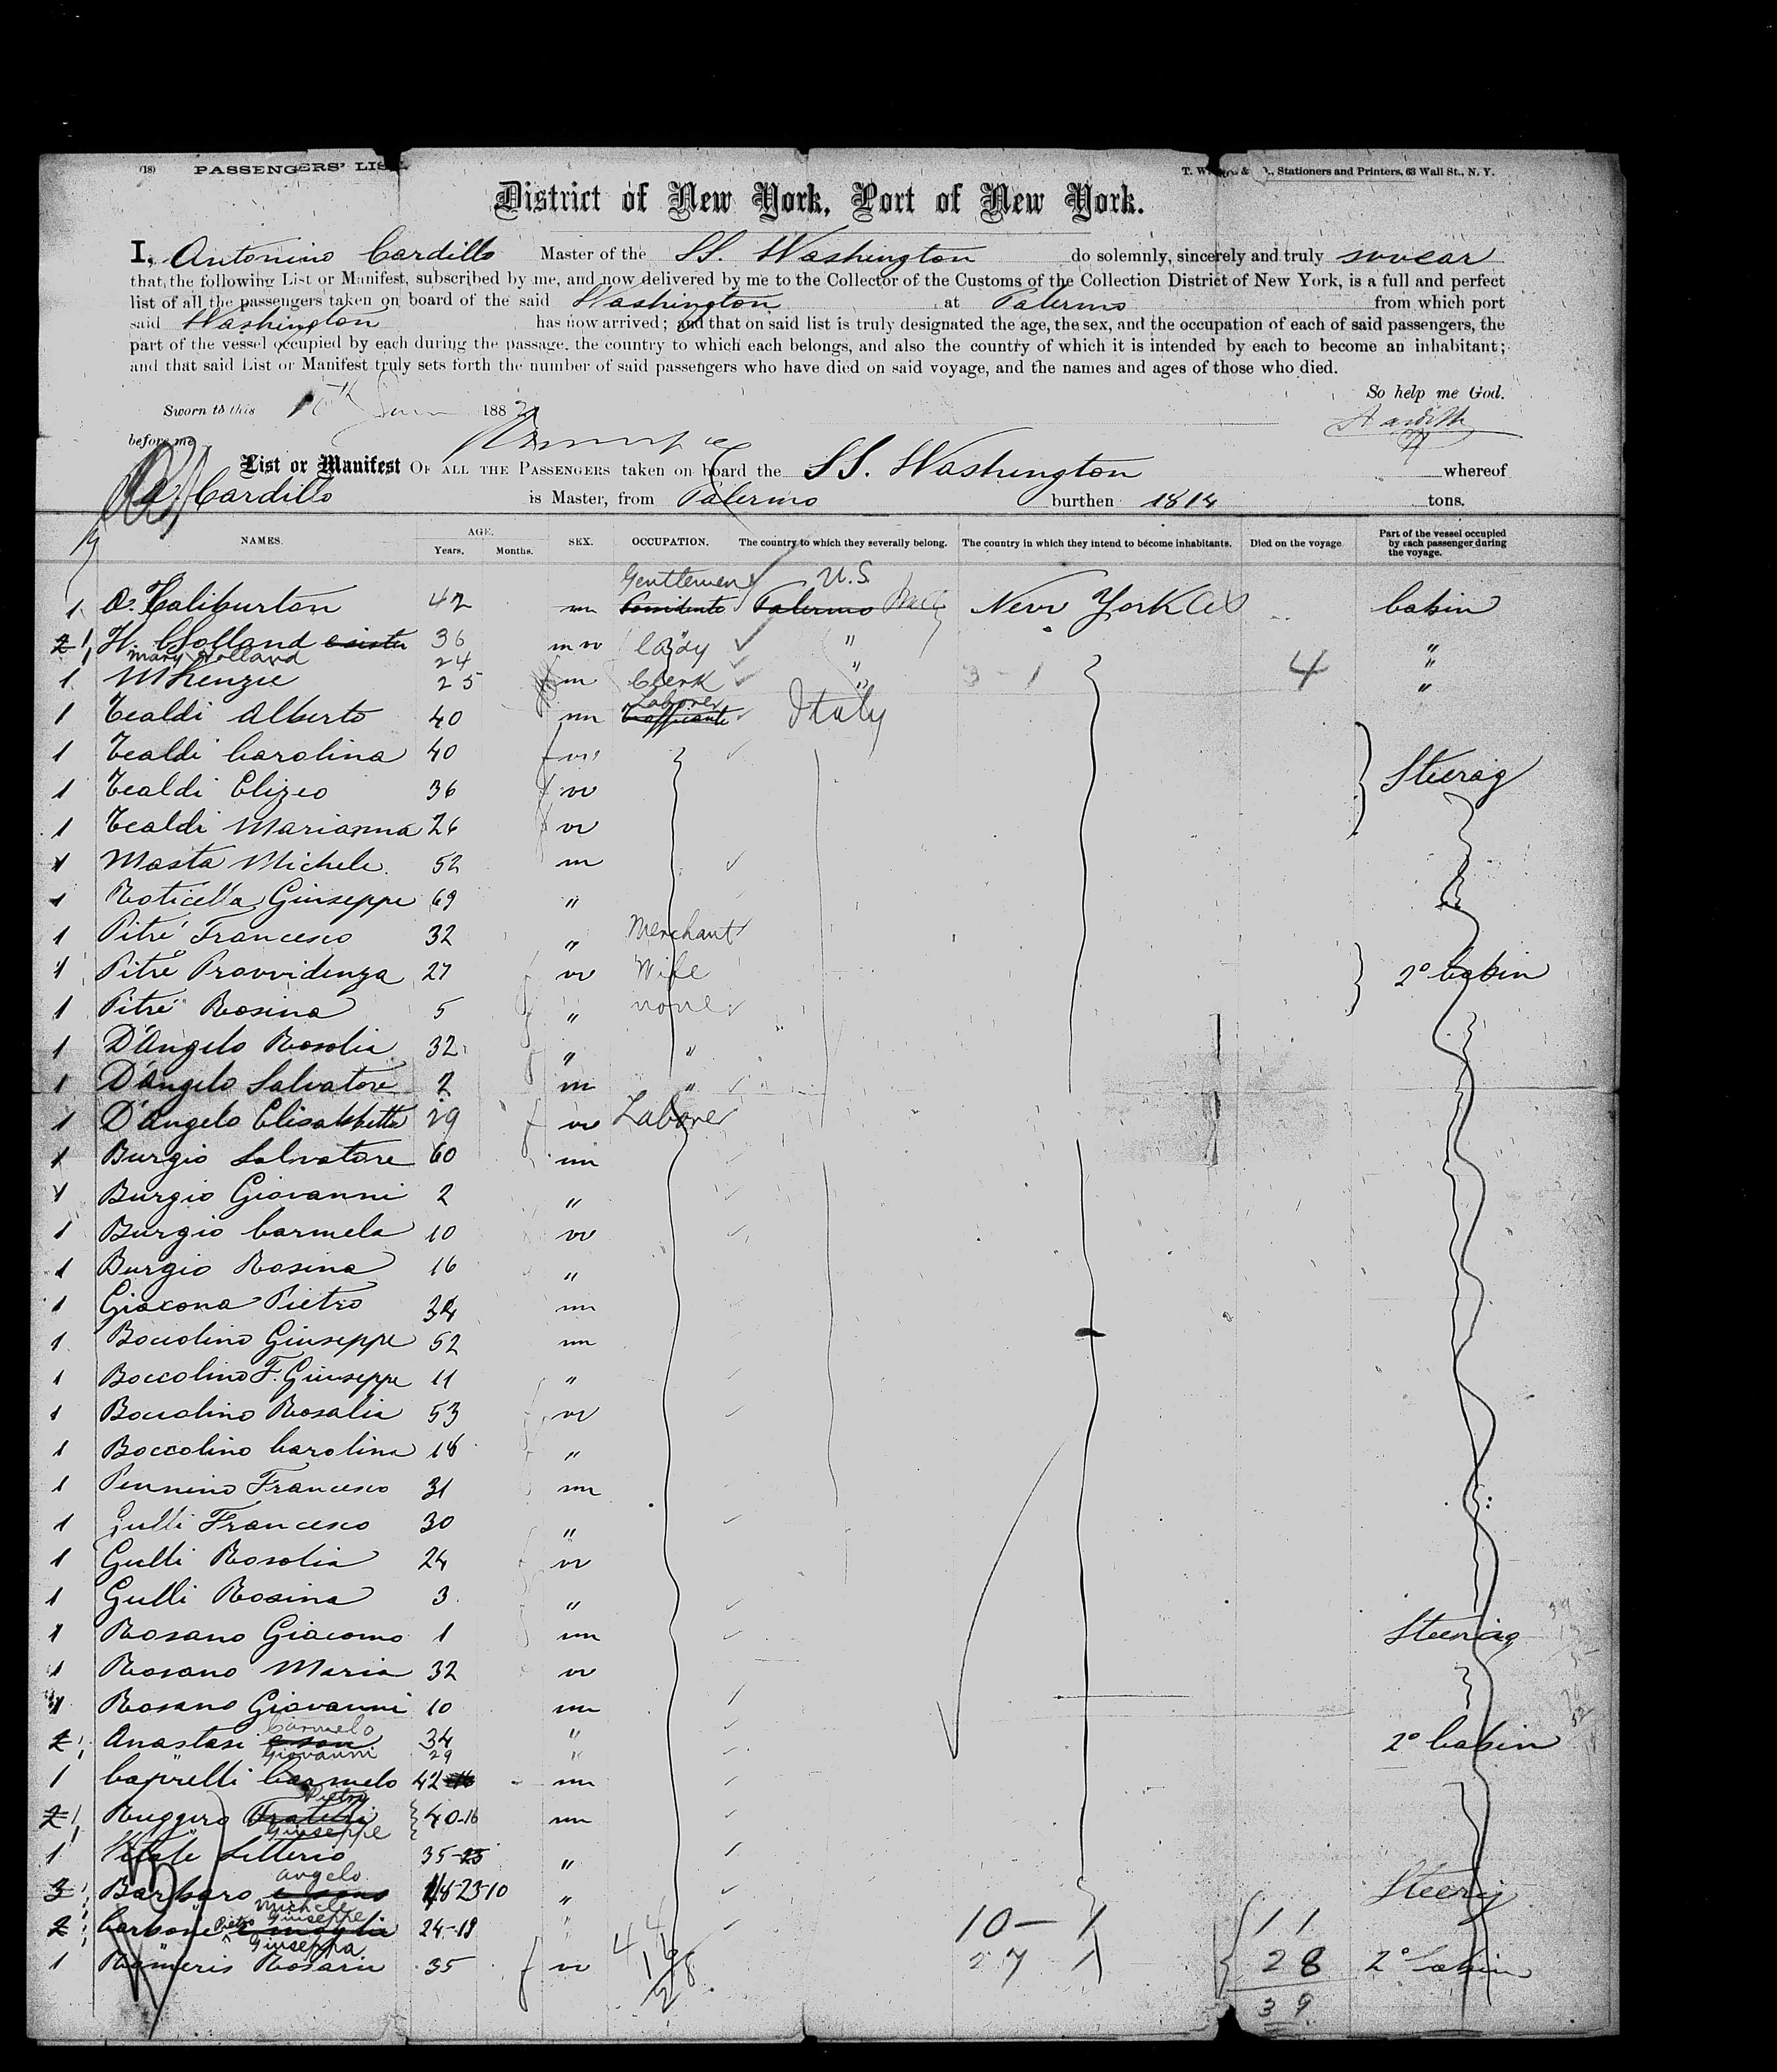 (18) PASSENGERS' LIST
T. W. & Stationers and Printers, 63 Wall St., N. Y.
District of New York, Port of New York.
I, Antonino Cardillo Master of the SS. Washington do solemnly, sincerely and truly swear
that the following List or Manifest, subscribed by me, and now delivered by me to the Collector of the Customs of the Collection District of New York, is a full and perfect
list of all the passengers taken on board of the said Washington at Palermo from which port
said Washington has now arrived; and that on said list is truly designated the age, the sex, and the occupation of each of said passengers, the
part of the vessel occupied by each during the passage, the country to which each belongs, and also the country of which it is intended by each to become an inhabitant;
and that said List or Manifest truly sets forth the number of said passengers who have died on said voyage, and the names and ages of those who died.
So help me God.
Sworn to this 188
before me
List or Manifest OF ALL THE PASSENGERS taken on board the SS. Washington whereof
A. Cardillo is Master, from Palermo burthen 1814 tons.
NAMES. AGE. Years. Months. SEX. OCCUPATION. The country to which they severally belong. The country in which they intend to become inhabitants. Died on the voyage Part of the vessel occupied by each passenger during the voyage.
Gentlemen U.S.
1 A. Haliburton 42 m Palermo New York Cabin
2 1 H. Holland e sister 36 m w lady " "
1 Mary Holland 24 " "
1 McKenzie 25 m Clerk " 3-1 4 "
1 Tealdi Alberto 40 m Laborer Trafficante Italy
1 Tealdi Carolina 40 f w
1 Tealdi Elizeo 36 f w Steerag
1 Tealdi Marianna 26 f w
1 Masta Michele 52 m
1 Roticella Giuseppe 69 "
1 Pitrè Francesco 32 " Merchant
1 Pitrè Provvidenza 27 f w Wife 2° Cabin
1 Pitrè Rosina 5 f " none
1 D'Angelo Rosolia 32 f " "
1 D'Angelo Salvatore 2 m "
1 D'Angelo Elisabbetta 29 f w Laborer
1 Burgio Salvatore 60 m
1 Burgio Giovanni 2 "
1 Burgio Carmela 10 w
1 Burgio Rosina 16 "
1 Giacona Pietro 34 m
1 Boccolino Giuseppe 52 m
1 Boccolino F. Giuseppe 11 "
1 Boccolino Rosalia 53 f w
1 Boccolino Carolina 18 f "
1 Pennino Francesco 31 m
1 Gulli Francesco 30 "
1 Gulli Rosolia 24 f w
1 Gulli Rosina 3 f "
1 Rosano Giacomo 1 m Steerag
1 Rosano Maria 32 w
1 Rosano Giovanni 10 m
2 1 Anastasi Carmelo e son 34 " 2° Cabin
1 " Giovanni 29 "
1 Caprelli Carmelo 42 m
2 1 Ruggero Pietro Fratelli 40-16 m
1 " Giuseppe
1 Vitale Litterio 35-25 "
3 1 Barbaro Angelo 48-23-10 " Steerig
" Michele
" Giuseppe
2 1 Carbone Pietro e moglie 24-19 " 10-1 11
" Giuseppa
1 Rameris Rosaria 35 f w 27 1 28 2° Cabin
39